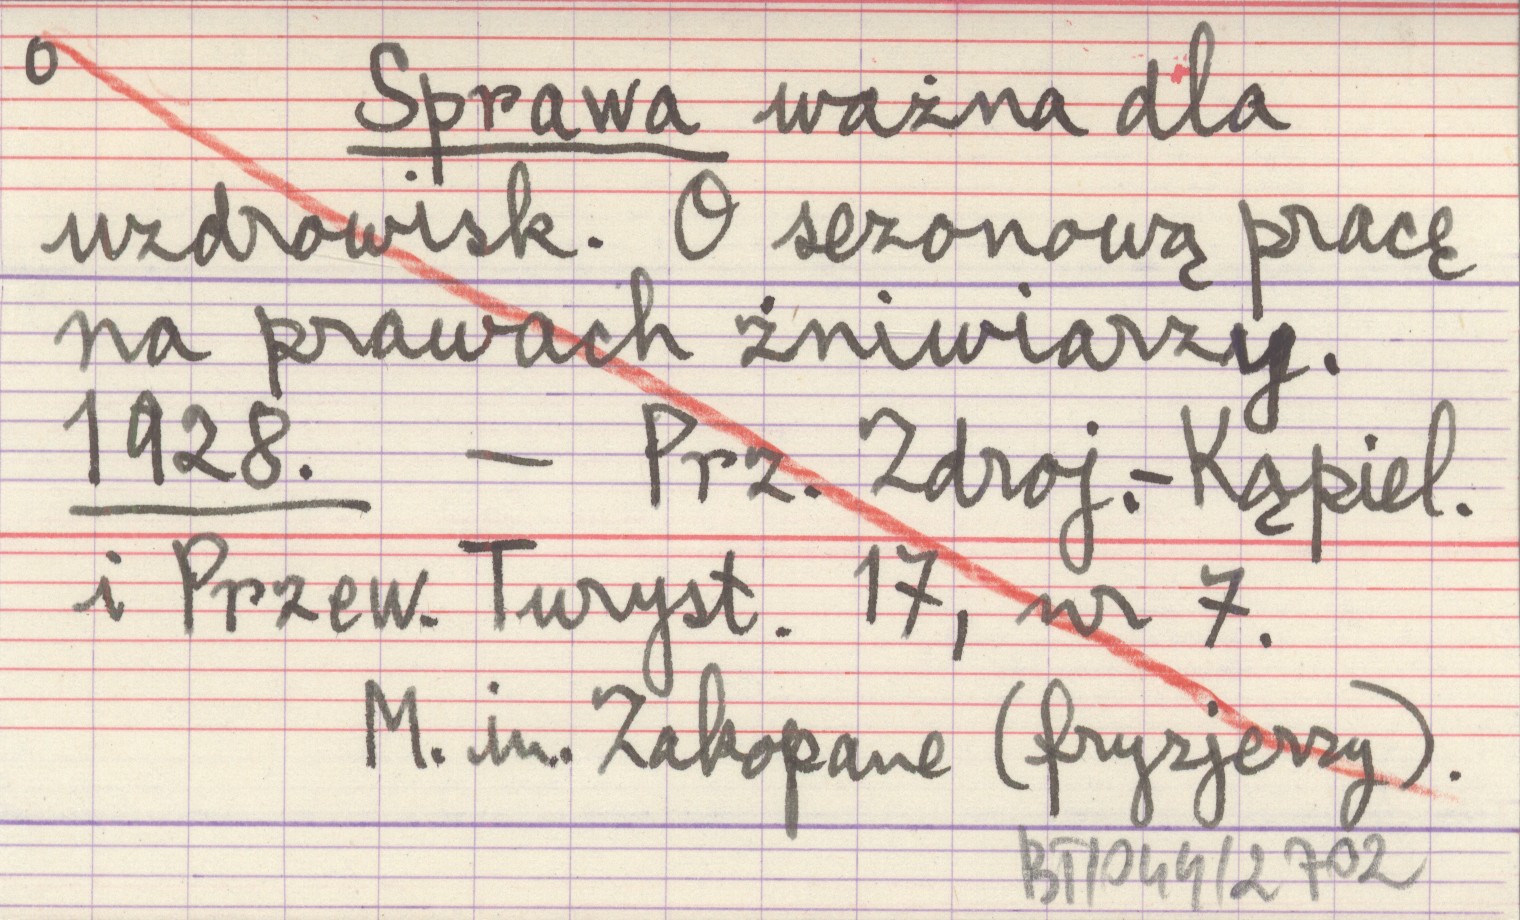 o
Sprawa ważna dla
uzdrowisk. O sezonową pracę
na prawach żniwiarzy.
1928. — Prz. Zdroj.-Kąpiel.
i Przew. Turyst. 17, nr 7.
M. in. Zakopane (fryzjerzy).
BT/044/2702